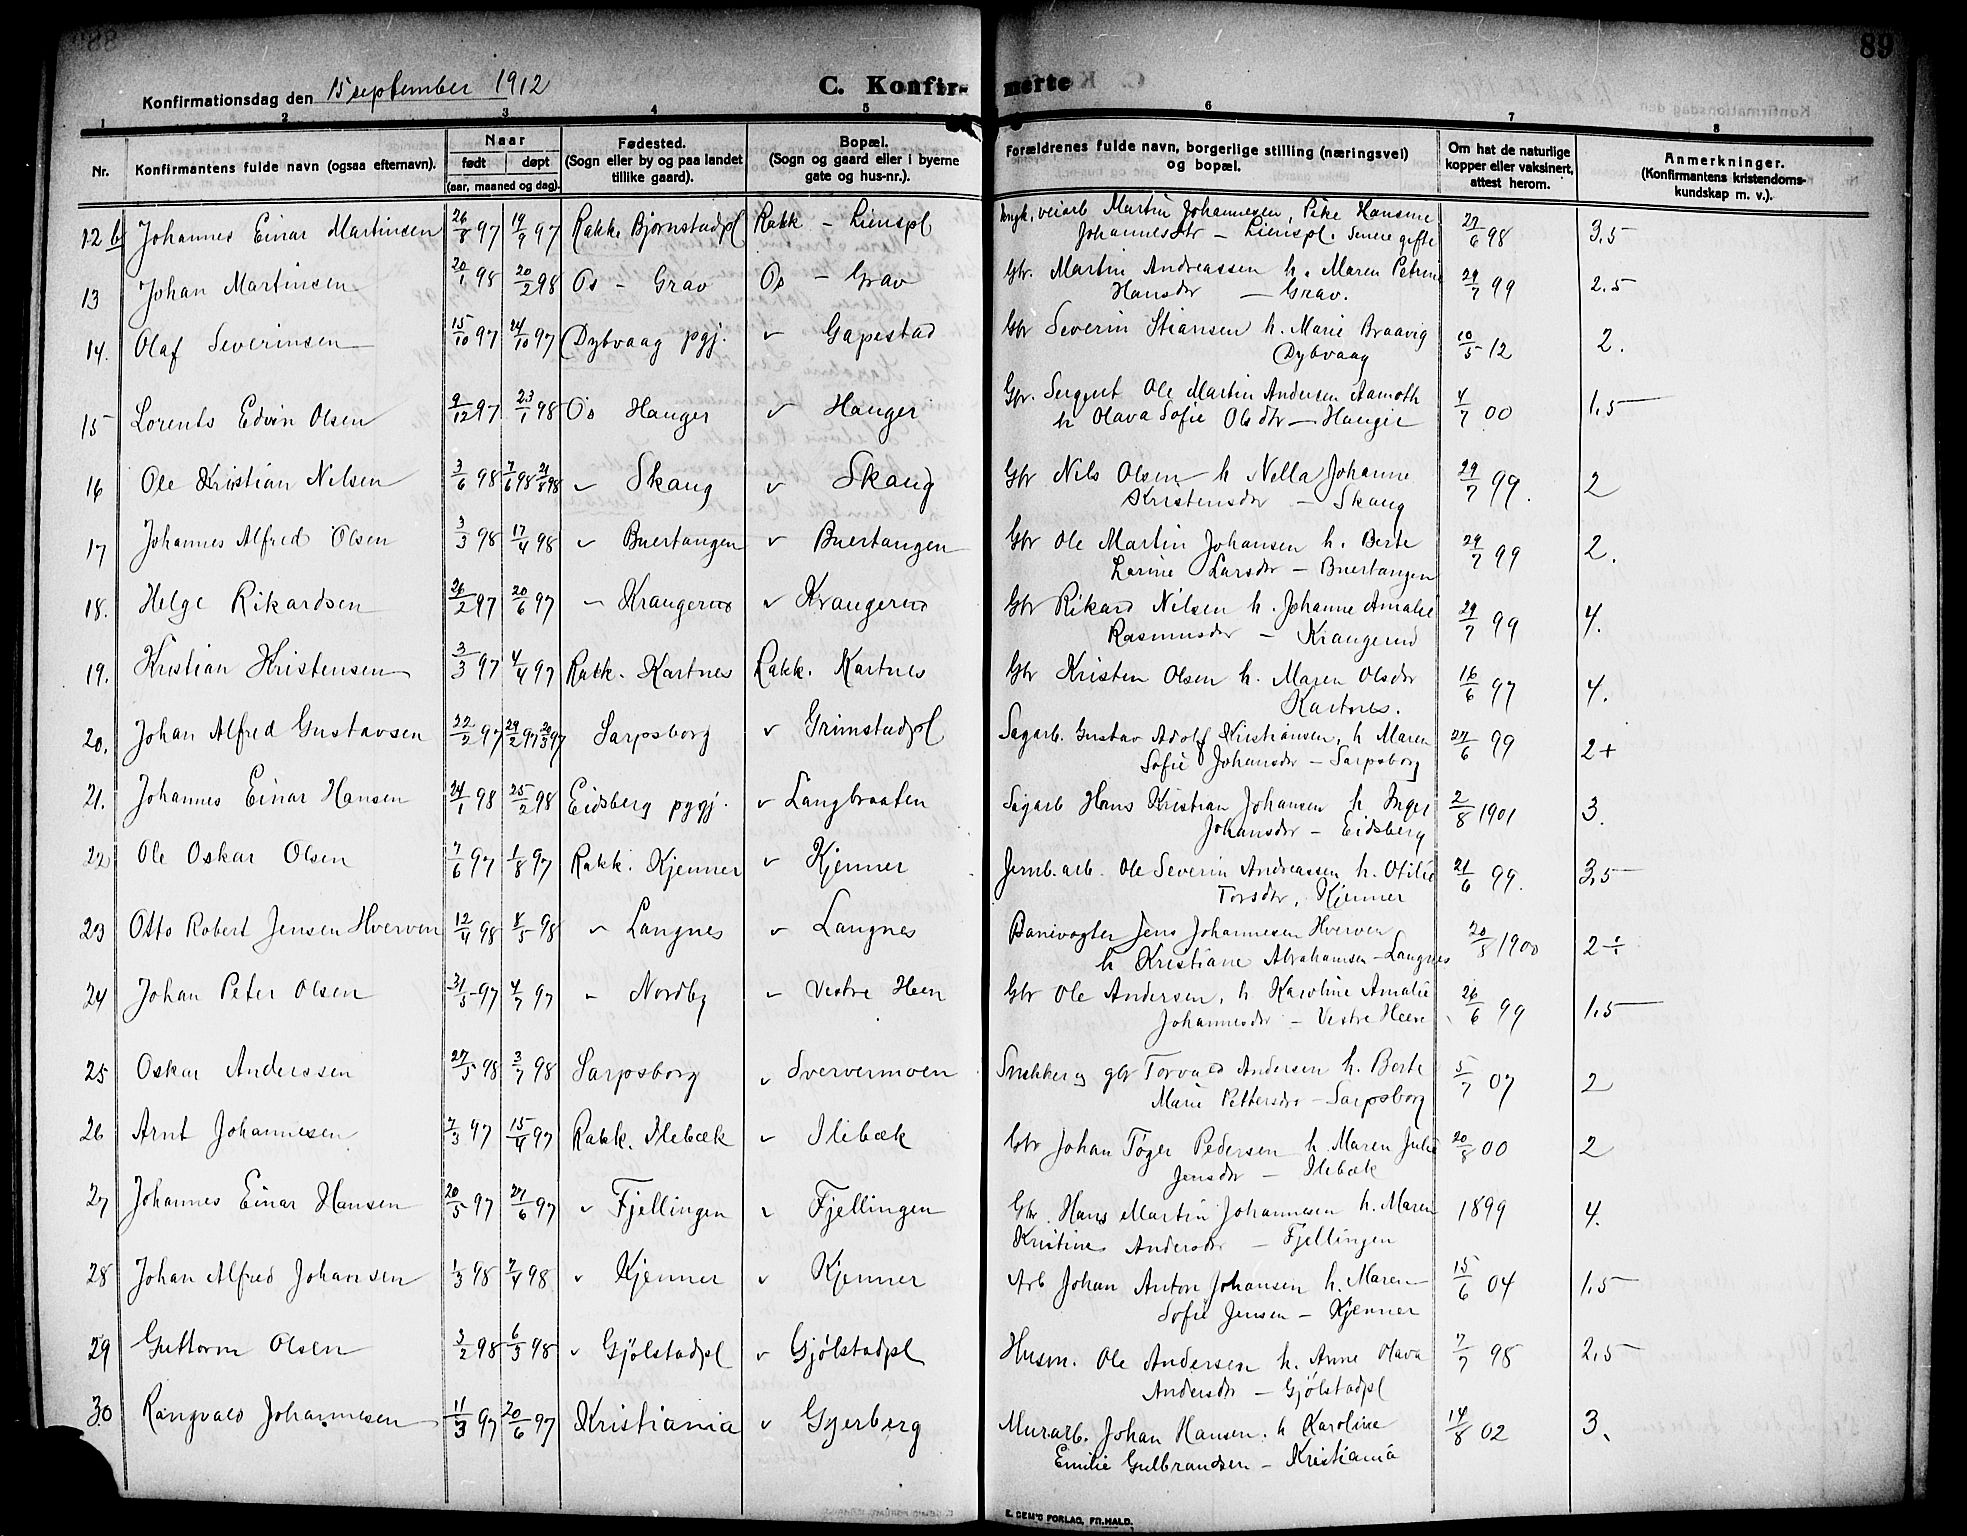 89
Konfirmationsdag den 15 september 1912
C. Konfir- merte
1 2 3 4 5 6 7 8
Nr.
Konfirmantens fulde navn (ogsaa efternavn).
Naar
født døpt
(aar, maaned og dag).
Fødested.
(Sogn eller by og paa landet
tillike gaard).
Bopæl.
(Sogn og gaard eller i byerne
gate og hus-nr.).
Forældrenes fulde navn, borgerlige stilling (næringsvei)
og bopæl.
Om hat de naturlige
kopper eller vaksinert,
attest herom.
Anmerkninger.
(Konfirmantens kristendoms-
kundskap m. v.).
12 b Johannes Einar Martinsen 26/8 97 19/9 97 Rakk. Bjørnstadpl Rakk – Lienspl veiarb Martin Johannesen, Pike Hansine 27/6 98 3.5
Johannesdtr – Lienspl. Senere gifte
13 Johan Martinsen 20/1 98 20/2 98 Os – Grav Os – Grav Gbr. Martin Andreassen h. Maren Petrine 29/7 99 2.5
Hansdtr – Grav.
14. Olaf Severinsen 15/10 97 24/10 97 Dybvaag pgj. " Gapestad Gbr Severin Stiansen h. Marie Braavig 10/5 12 2.
Dybvaag
15 Lorents Edvin Olsen 9/12 97 23/1 98 Os Hauger " Hauger Gbr. Sergent Ole Martin Andersen Aamoth 4/7 00 1,5
h Olava Sofie Olsdtr – Haugir
16 Ole Kristian Nilsen 3/6 98 7/6 98 21/8 98 " Skaug " Skaug Gbr Nils Olsen h Nella Johanne 29/7 99. 2
Kristensdtr – Skaug
17 Johannes Alfred Olsen 3/3 98 17/4 98 " Buertangen " Buertangen Gbr Ole Martin Johansen h. Berte 29/7 99 2.
Larine Larsdtr – Buertangen
18. Helge Rikardsen 26/2 97 20/6 97 " Krangerud " Krangerud Gbr Rikard Nilsen h. Johanne Amalie 29/7 99 4.
Rasmusdtr – Krangerud
19. Kristian Kristensen 3/3 97 4/4 97 Rakk. Kartnes Rakk. Kartnes Gbr Kristen Olsen h. Maren Olsdtr 16/6 97 4.
Kartnes.
20. Johan Alfred Gustavsen 22/2 97 29/2 97 20/3 97 Sarpsborg " Grimstadpl Sagarb. Gustav Adolf Kristiansen, h Maren 27/6 99 2+
Sofie Johansdtr – Sarpsborg
21. Johannes Einar Hansen 24/1 98 25/2 98 Eidsberg pgj. " Langbraaten Sagarb Hans Kristian Johansen h Inger 2/8 1901 3.
Johansdtr – Eidsberg
22 Ole Oskar Olsen 7/6 97 1/8 97 Rakk. Kjenner " Kjenner Jernb.arb. Ole Severin Andreassen h. Otilie 21/6 99. 3,5
Torsdtr, Kjenner
23 Otto Robert Jensen Hverven 12/4 98 8/5 98 " Langnes " Langnes Banevogter Jens Johannesen Hverven 20/5 1900 2÷
h Kristiane Abrahamsen – Langnes
24 Johan Peter Olsen 31/5 97 4/7 97 " Nordby " Vestre Heen Gbr Ole Andersen, h Karoline Amalie 26/6 99 1,5
Johannesdtr – Vestre Heen
25 Oskar Anderssen 27/5 98 3/7 98 Sarpsborg " Svervemoen Snekker og gbr Torvald Andersen h. Berte 5/7 07 2
Marie Pettersdtr – Sarpsborg
26 Arnt Johannesen 7/3 97 15/4 97 Rakk. Ilebæk " Ilebæk Gbr Johan Tøger Pedersen h. Maren Julie 20/8 00 2
Jensdtr – Ilebæk
27 Johannes Einar Hansen 20/5 97 27/6 97 " Fjellingen " Fjellingen Gbr. Hans Martin Johannesen h. Maren 1899 4.
Kristine Andersdtr – Fjellingen
28 Johan Alfred Johansen 1/3 98 7/4 98 " Kjenner " Kjenner Arb Johan Anton Johansen h. Maren 15/6 04 1,5
Sofie Jensen – Kjenner
29 Guttorm Olsen 3/2 98 6/3 98 " Gjølstadpl " Gjølstadpl Husm. Ole Andersen h. Anne Olava 7/7 98 2,5
Andersdtr – Gjølstadpl
30 Rangvald Johannesen 11/3 97 20/6 97 Kristiania " Gjerberg Murarb. Johan Hansen. h Karoline 14/8 02 3.
Emilie Gulbrandsen – Kristiania
E. SEM'S FORLAG, FR.HALD.